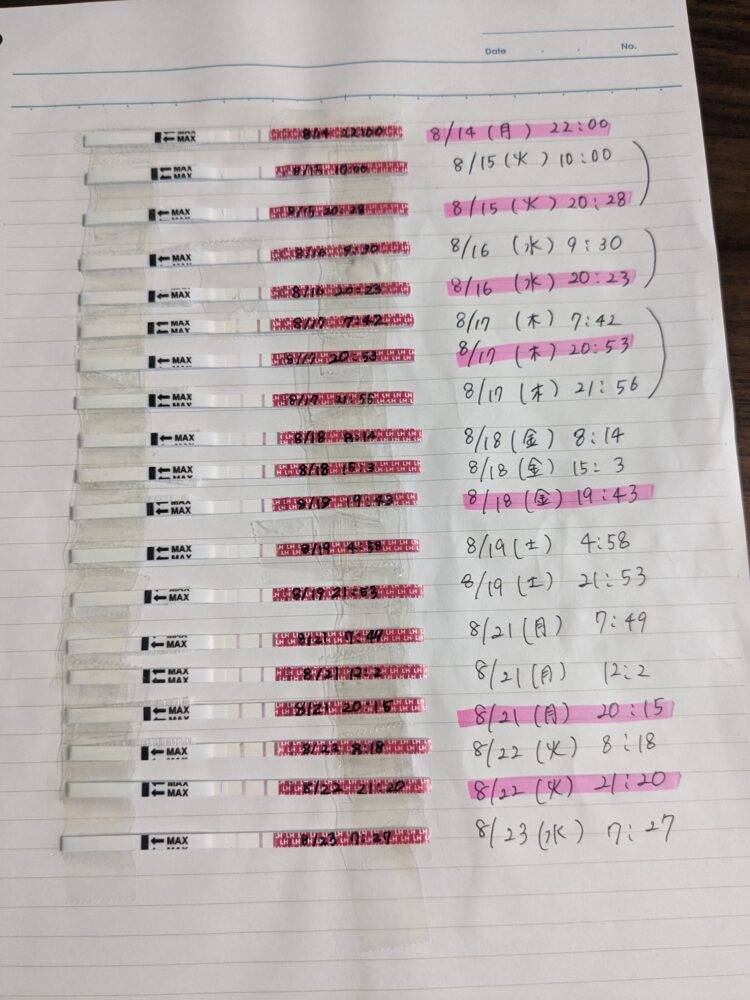 Date . . No.
MAX 8/14 22:00 8/14 (月) 22:00
MAX 8/15 10:00 8/15 (火) 10:00
MAX 8/15 20:28 8/15 (火) 20:28
MAX 8/16 9:30 8/16 (水) 9:30
MAX 8/16 20:23 8/16 (水) 20:23
MAX 8/17 7:42 8/17 (木) 7:42
MAX 8/17 20:53 8/17 (木) 20:53
MAX 8/17 21:56 8/17 (木) 21:56
MAX 8/18 8:14 8/18 (金) 8:14
MAX 8/18 15:3 8/18 (金) 15:3
MAX 8/18 19:43 8/18 (金) 19:43
MAX 8/19 4:58 8/19 (土) 4:58
MAX 8/19 21:53 8/19 (土) 21:53
MAX 8/21 7:49 8/21 (月) 7:49
MAX 8/21 12:2 8/21 (月) 12:2
MAX 8/21 20:15 8/21 (月) 20:15
MAX 8/22 8:18 8/22 (火) 8:18
MAX 8/22 21:20 8/22 (火) 21:20
MAX 8/23 7:27 8/23 (水) 7:27